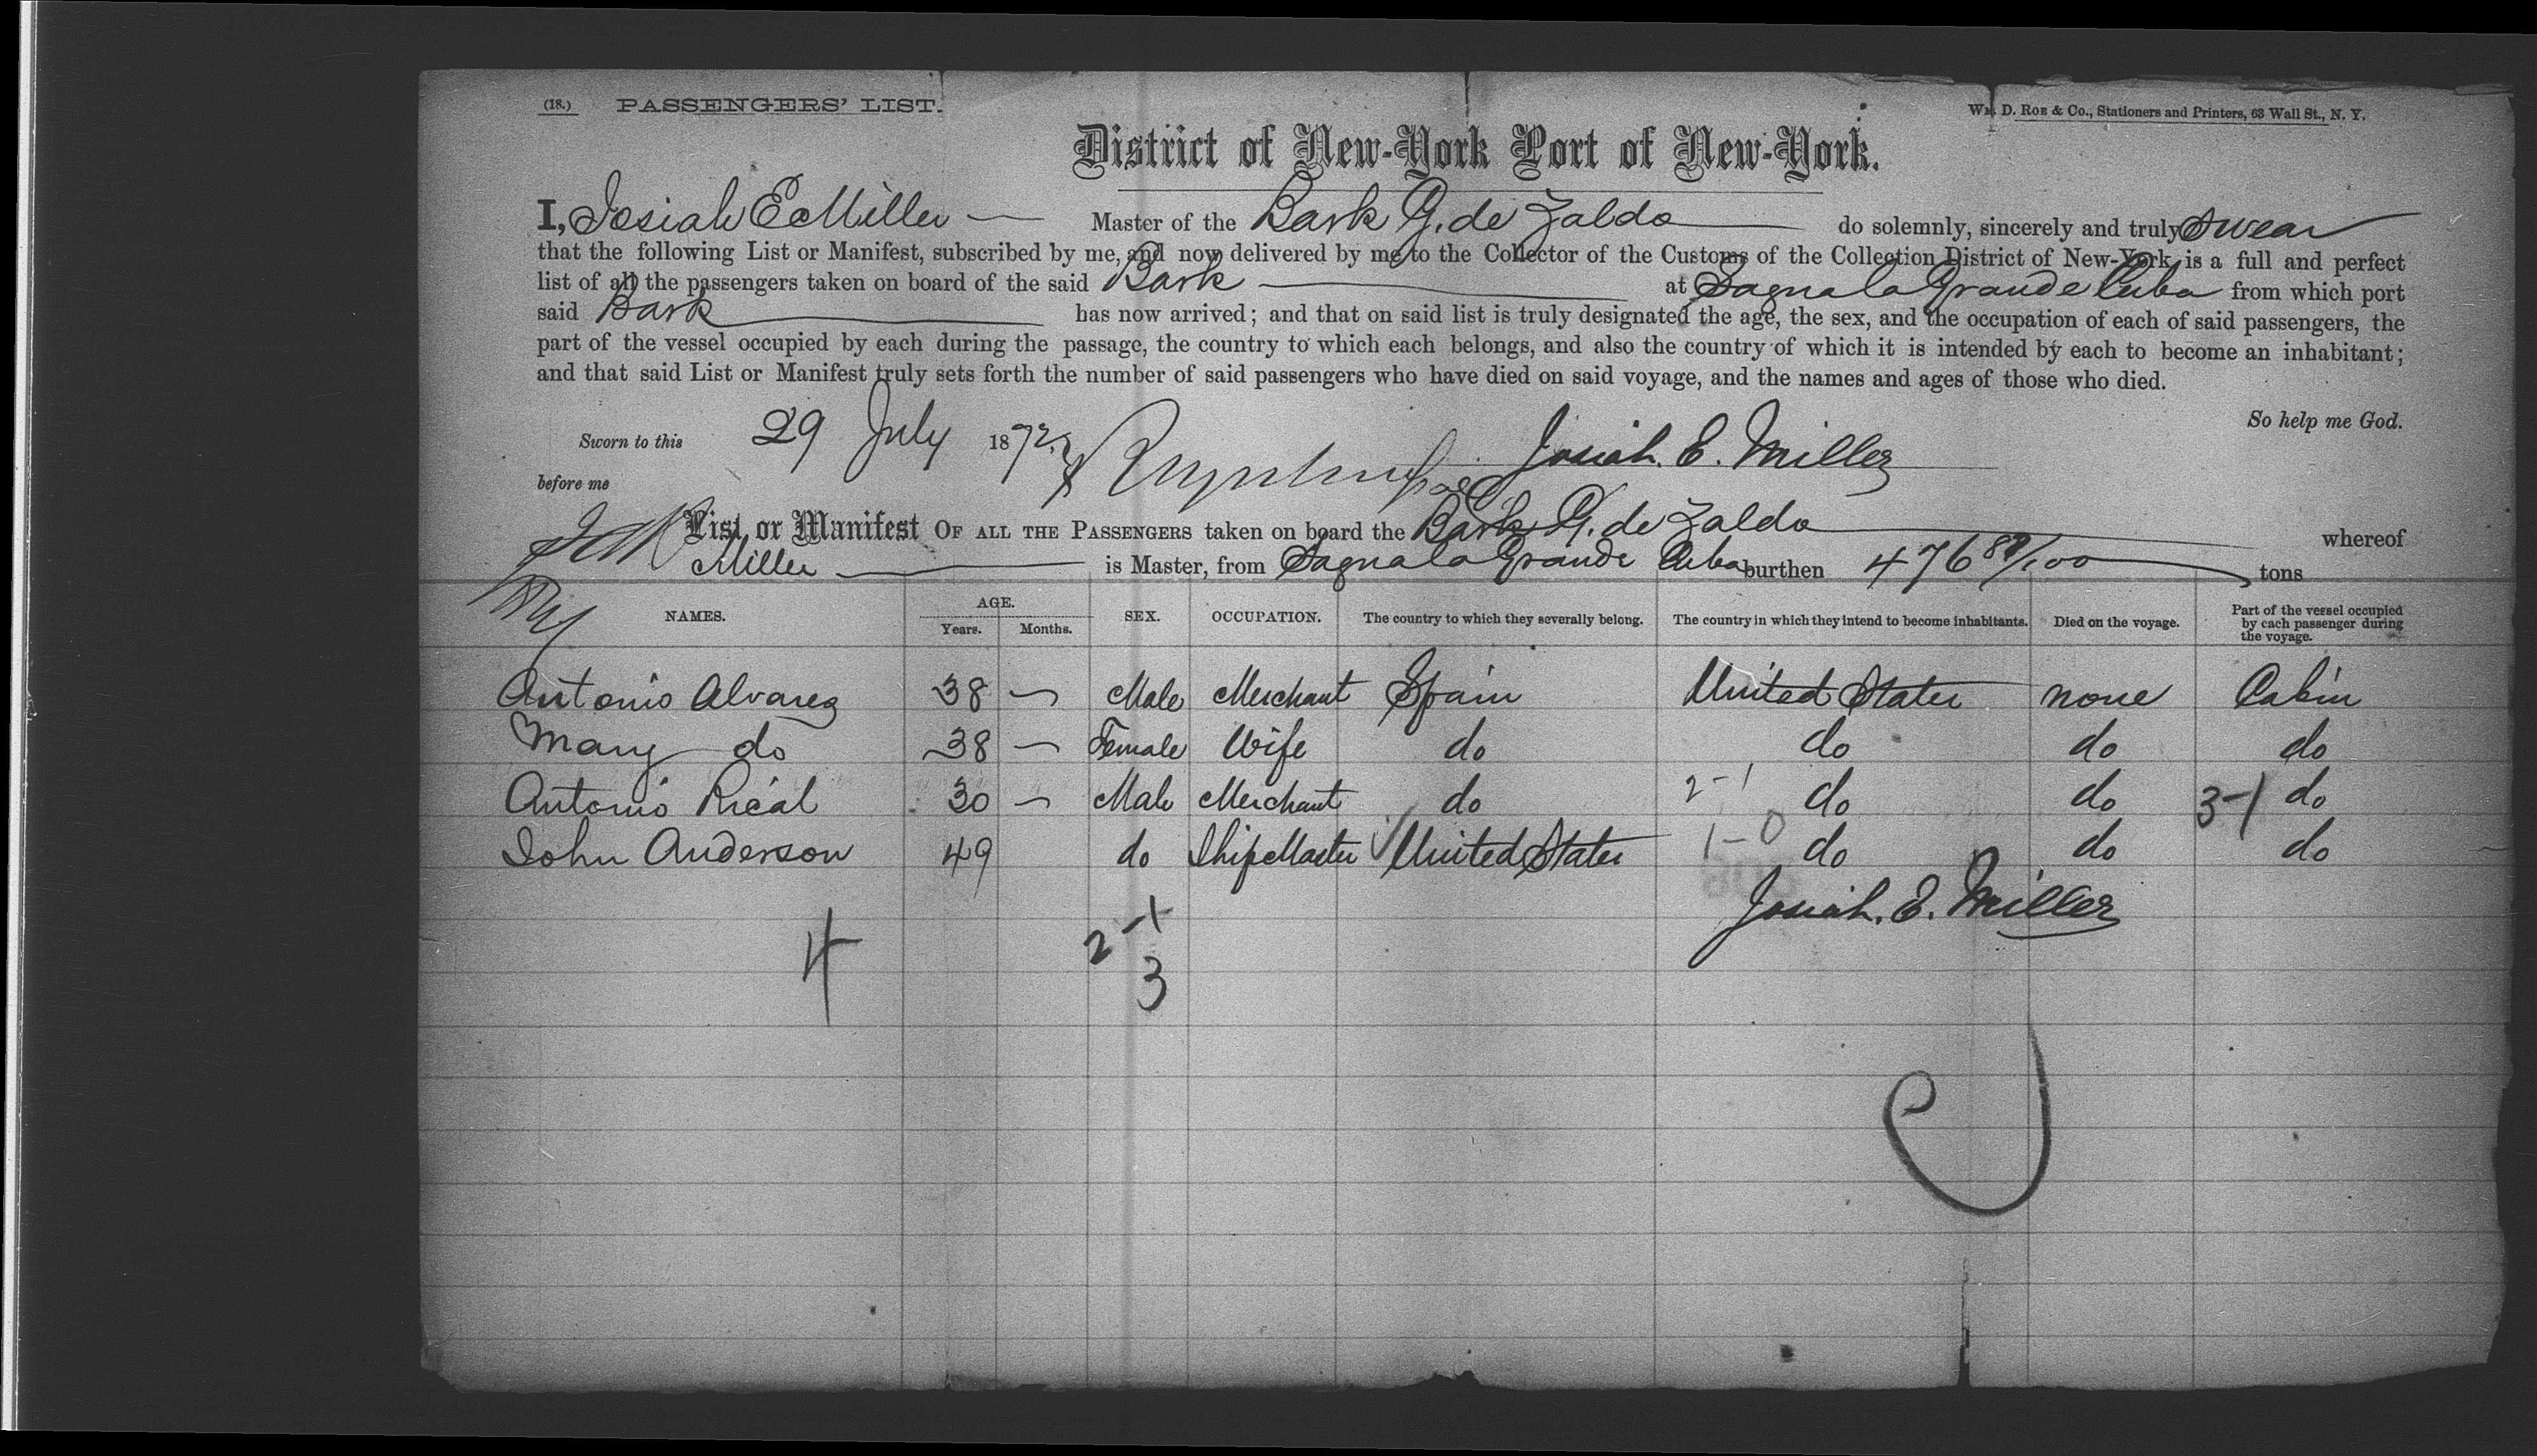 (18.) PASSENGERS' LIST. Wm. D. Roe & Co., Stationers and Printers, 63 Wall St., N. Y.
District of New-York Port of New-York.
I, Josiah E Miller Master of the Bark G. de Zaldo do solemnly, sincerely and truly swear
that the following List or Manifest, subscribed by me, and now delivered by me to the Collector of the Customs of the Collection District of New-York, is a full and perfect
list of all the passengers taken on board of the said Bark at Sagua la Grande Cuba from which port
said Bark has now arrived; and that on said list is truly designated the age, the sex, and the occupation of each of said passengers, the
part of the vessel occupied by each during the passage, the country to which each belongs, and also the country of which it is intended by each to become an inhabitant;
and that said List or Manifest truly sets forth the number of said passengers who have died on said voyage, and the names and ages of those who died.
So help me God.
Sworn to this 29 July 1872 Josiah. E. Miller
before me
List or Manifest OF ALL THE PASSENGERS taken on board the Bark G. de Zaldo whereof
Miller is Master, from Sagua la Grande Cuba burthen 476 88/100 tons
NAMES. AGE. Years. Months. SEX. OCCUPATION. The country to which they severally belong. The country in which they intend to become inhabitants. Died on the voyage. Part of the vessel occupied by each passenger during the voyage.
Antonio Alvarez 38 — Male Merchant Spain United States none Cabin
Mary do 38 — Female Wife do do do do
Antonio Rieal 30 — Male Merchant do 2-1 do do 3-1 do
John Anderson 49 do ShipMaster United States 1-0 do do do
Josiah. E. Miller
4 2-1
3